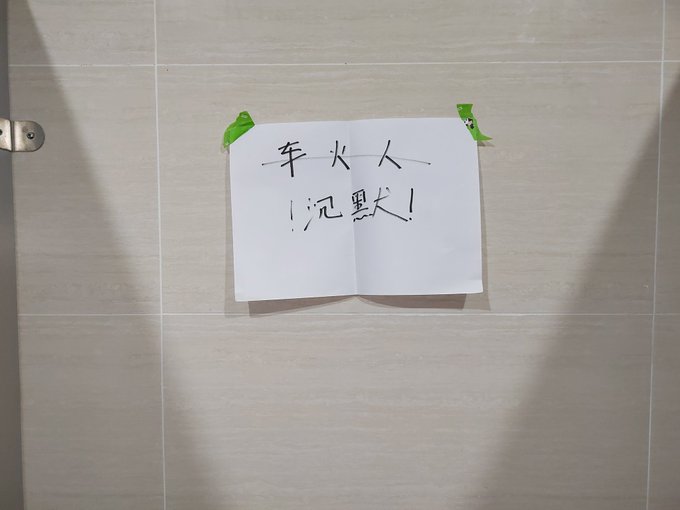 车火人
！沉默！